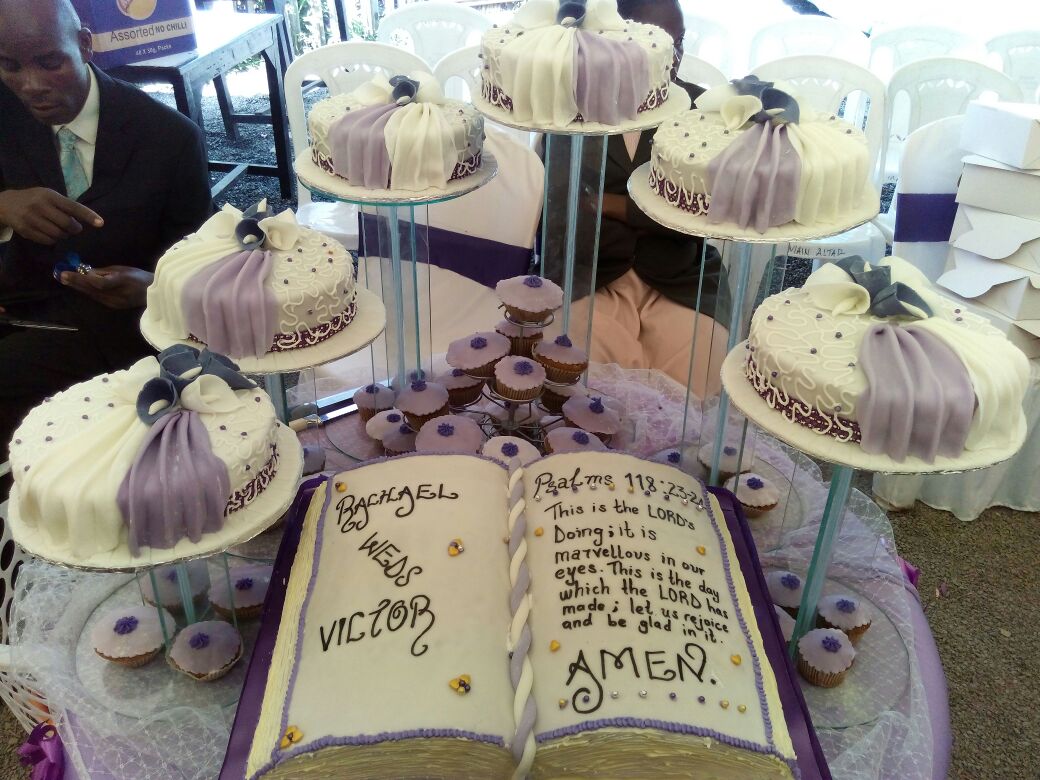 Assorted NO CHILLI
48 X 30g Packs
MAIN ALTAR
RACHAEL
WEDS
VICTOR
Psalms 118:23-24
This is the LORD's
Doing; it is
marvellous in our
eyes. This is the day
which the LORD has
made; let us rejoice
and be glad in it.
AMEN.